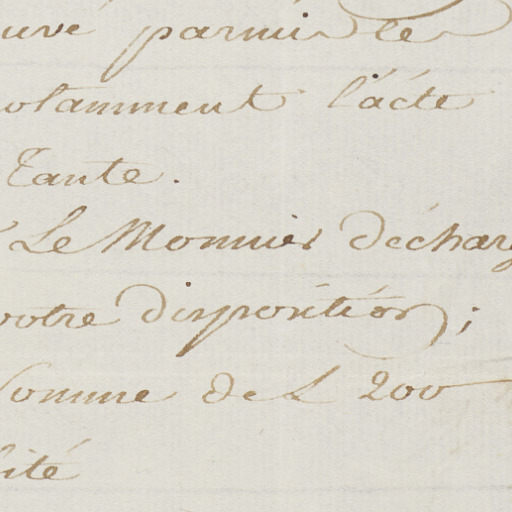 uvé parmi les
otamment l'acte
Tante.
Le Monnier décharg
votre disposition;
Somme de L 200
ité